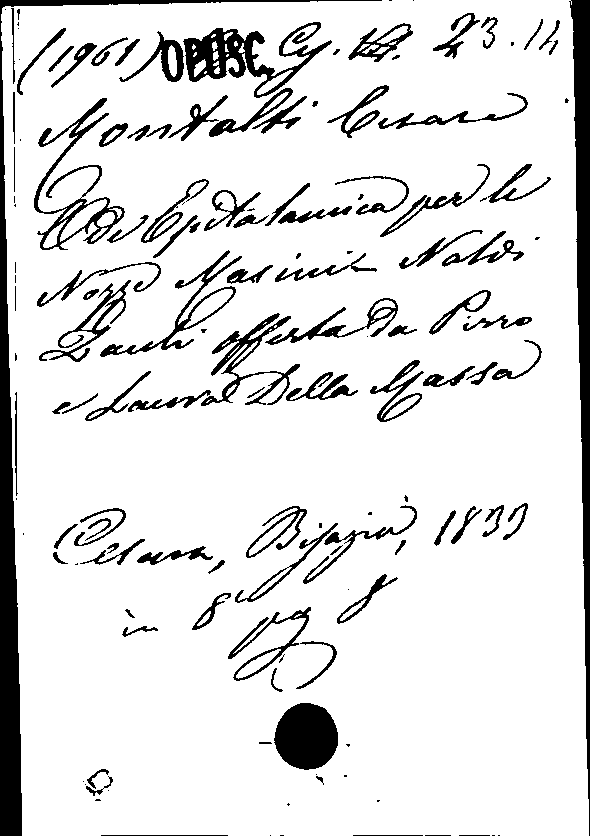 (1961) OPUSC. Cy. 23.14
Montalti Cesare
Ode Epitalamica per le
Nozze Masini Naldi
Zauli offerta da Pirro
e Laura Della Massa
Cesena, Bisazia, 1833
in 8° pg 8